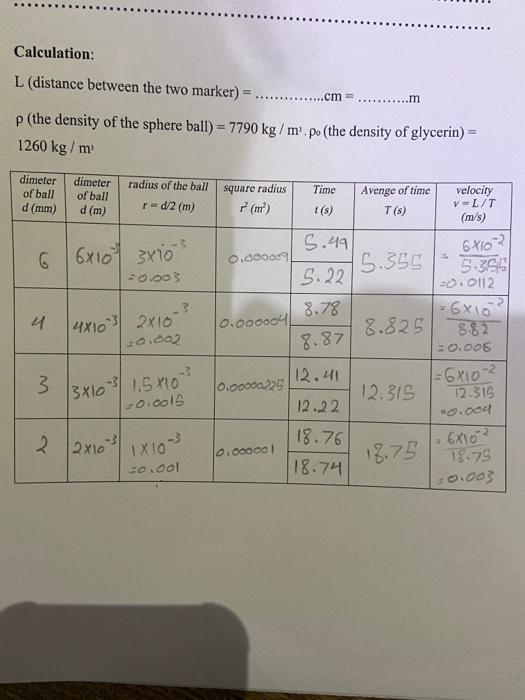 Calculation:
L (distance between the two marker) = ...............cm = ...........m
ρ (the density of the sphere ball) = 7790 kg / m³ . ρo (the density of glycerin) =
1260 kg / m³
dimeter of ball d (mm) | dimeter of ball d (m) | radius of the ball r = d/2 (m) | square radius r² (m²) | Time t (s) | Avenge of time T (s) | velocity v = L / T (m/s)
6 | 6x10⁻³ | 3x10⁻³ =0.003 | 0.000009 | 5.49 5.22 | 5.355 | = 6x10⁻²/5.355 =0.0112
4 | 4x10⁻³ | 2x10⁻³ =0.002 | 0.000004 | 8.78 8.87 | 8.825 | = 6x10⁻²/8.82 =0.006
3 | 3x10⁻³ | 1.5x10⁻³ =0.0015 | 0.00000225 | 12.41 12.22 | 12.315 | =6x10⁻²/12.315 =0.004
2 | 2x10⁻³ | 1x10⁻³ =0.001 | 0.000001 | 18.76 18.74 | 18.75 | = 6x10⁻²/18.75 =0.003